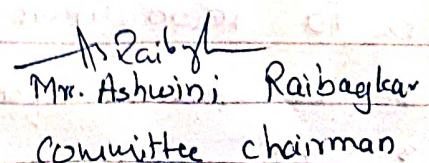 Mr. Ashwini Raibagkar
Committee chairman